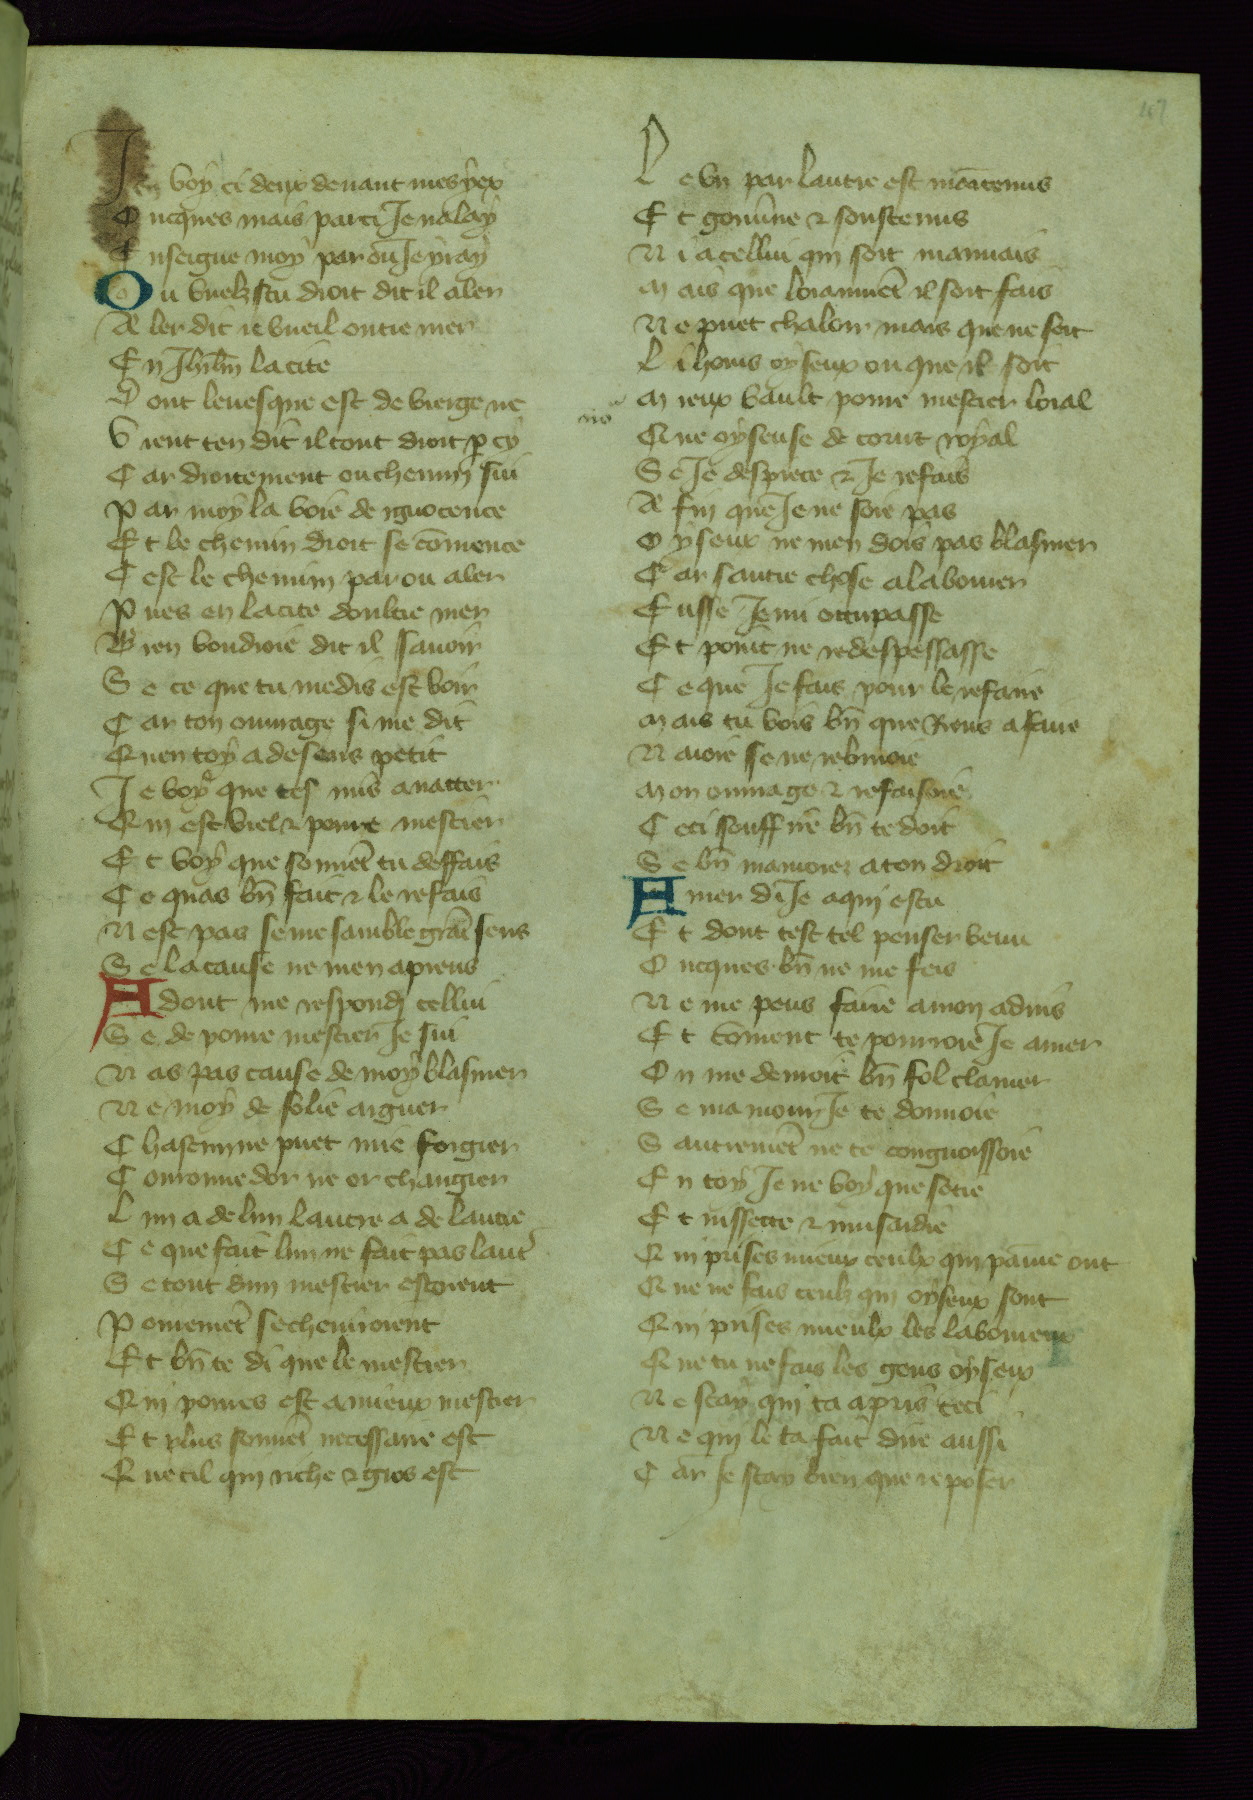 107
Jen voy ci deux deuant mes yex
O ncques mais par ci Je nalay
E nseigne moy par ou Je yray
O u vuelz stu droit dit il aler
A ler dit ie vueil oultre mer
E n Jhrlm la cite
D ont leuesque est de vierge ne
V ient ten dit il tout droit p cy
C ar droitement ou chemin sui
P ar moy la voie de ignocence
E t le chemin droit se cōmence
C est le chemin par ou aler
P ues en la cite doultre mer
B ien voudroie dit il sauoir
S e ce que tu me dis est voir
C ar ton ouurage si me dit
Q uen toy a de sens petit
J e voy que tes mis a natter
Q ui est viel & poure mestier
E t voy que souuēt tu deffais
C e quas bn̄ fait & le refais
N est pas se me samble grāt sens
S e la cause ne men aprens
A dont me respondj cellui
S e de poure mestier Je sui
N as pas cause de moy blasmer
N e moy de folie arguer
C hascun ne puet mie forgier
C ouronne dor ne or changier
L un a de lun lautre a de lautre
C e que fait lun ne fait pas laut
S e tout dun mestier estoient
P ourement se cheuiroient
E t bn̄ te di que le mestier
Q ui poures est a mieux mestier
E t plus souuēt necessaire est
Q ue cil qui riche & gros est
L e vn par lautre est maītenus
E t gouuīne & soustenus
N i a cellui qui soit mauuais
M ais que loiaumēt il soit fais
N e puet chaloir mais que ne soit
L i homs oyseux ou que il soit
M ieux vault poure mestier loial
Q ue oyseuse de court royal
S e Je despiece & Je refais
A fin que Je ne soie pas
O yseux ne men dois pas blasmer
C ar sautre chose a labourer
E usse Je mi occupasse
E t point ne redespessasse
C e que Je fais pour le refaire
M ais tu vois bn̄ que Riens a faire
N auoie se ne rebrisoie
M on ouurage & refaisoie
C eci souffrir bn̄ te doit
S e bn̄ mamoiez a ton droit
A mer di Je a qui es tu
E t dont test tel penser venu
O ncques bn̄ ne me feis
N e me peus faire a mon aduis
E t cōment te pourroie Je amer
O n me deuroit bn̄ fol clamer
S e mamour Je te donnoie
S autremēt ne te congnoissoie
E n toy Je ne voy que sotie
E t nissette & musardie
Q ui prises mieux ceulx qui paine ont
Q ue ne fais ceulz qui oyseux sont
Q ui prises mieulx les laboureux
Q ue tu ne fais les gens oyseux
N e scay qui ta apris ceci
N e qui le ta fait dire aussi
C ar Je scay bien que reposer